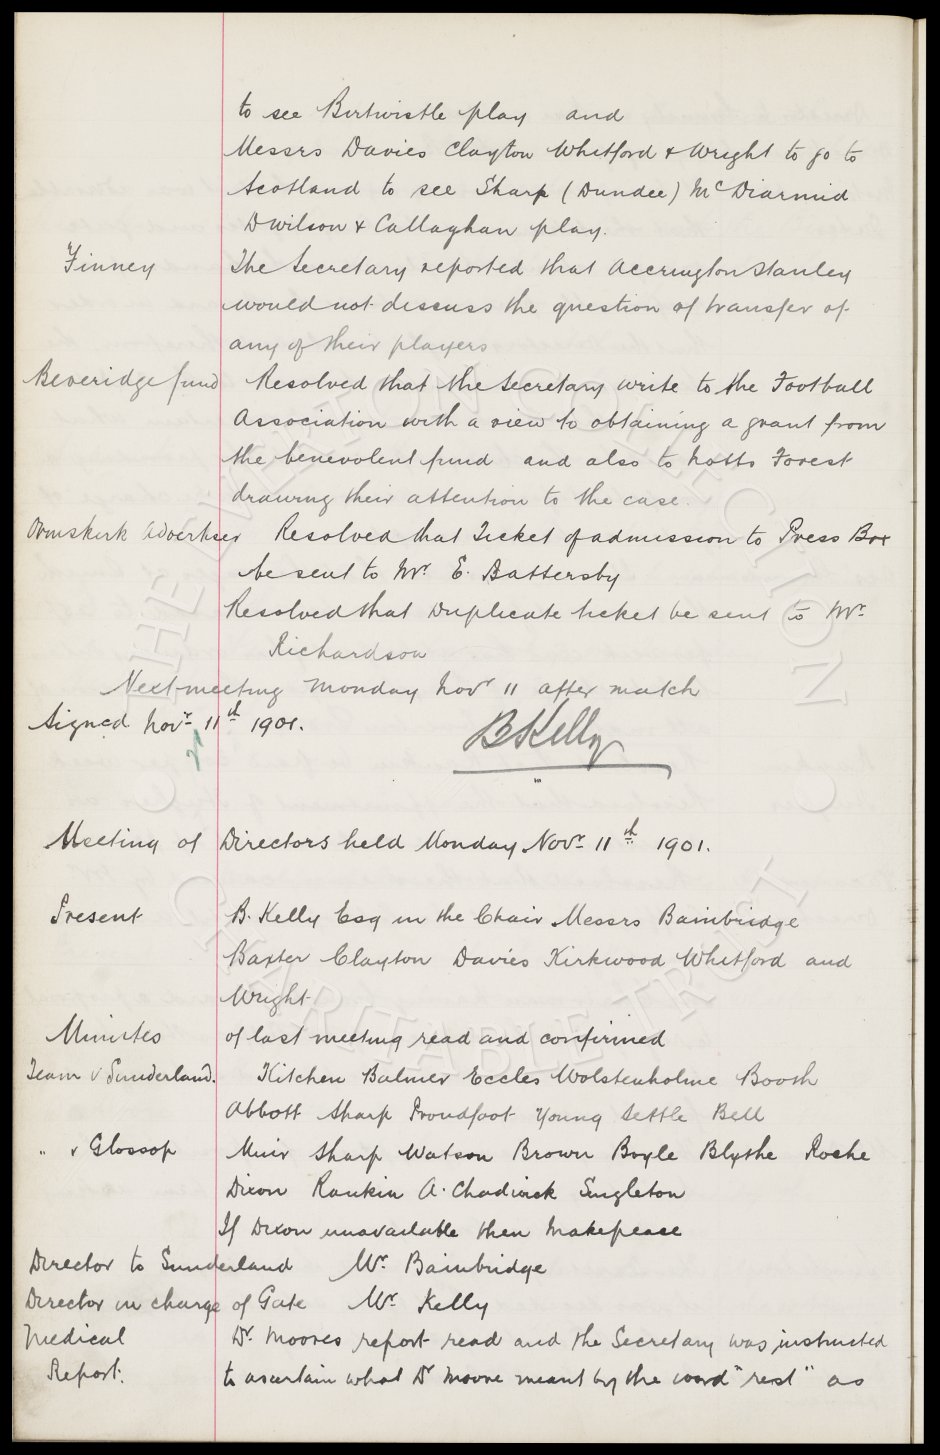 to see Birtwistle play and
Messrs Davies Clayton Whitford & Wright to go to
Scotland to see Sharp (Dundee) McDiarmid
D Wilson & Callaghan play.
Finney The Secretary reported that Accrington Stanley
would not discuss the question of transfer of
any of their players
Beveridge fund Resolved that the Secretary write to the Football
Association with a view to obtaining a grant from
the benevolent fund and also to Notts Forest
drawing their attention to the case.
Ormskirk Advertiser Resolved that Ticket of admission to Press Box
be sent to Mr. E. Battersby
Resolved that Duplicate ticket be sent to Mr
Richardson
Next meeting Monday Novr 11 after match
Signed Novr 11th 1901.
B Kelly
21
Meeting of Directors held Monday Novr 11th 1901.
Present B. Kelly Esq in the Chair Messrs Bainbridge
Baxter Clayton Davies Kirkwood Whitford and
Wright
Minutes of last meeting read and confirmed
Team v Sunderland. Kitchen Balmer Eccles Wolstenholme Booth
Abbott Sharp Proudfoot Young Settle Bell
" v Glossop Muir Sharp Watson Brown Boyle Blythe Roche
Dixon Rankin A. Chadwick Singleton
If Dixon unavailable then Makepeace
Director to Sunderland Mr. Bainbridge
Director in charge of Gate Mr. Kelly
Medical Dr. Moores report read and the Secretary was instructed
Report. to ascertain what Dr Moore meant by the word "rest" as
THE EVERTON COLLECTION
CHARITABLE TRUST